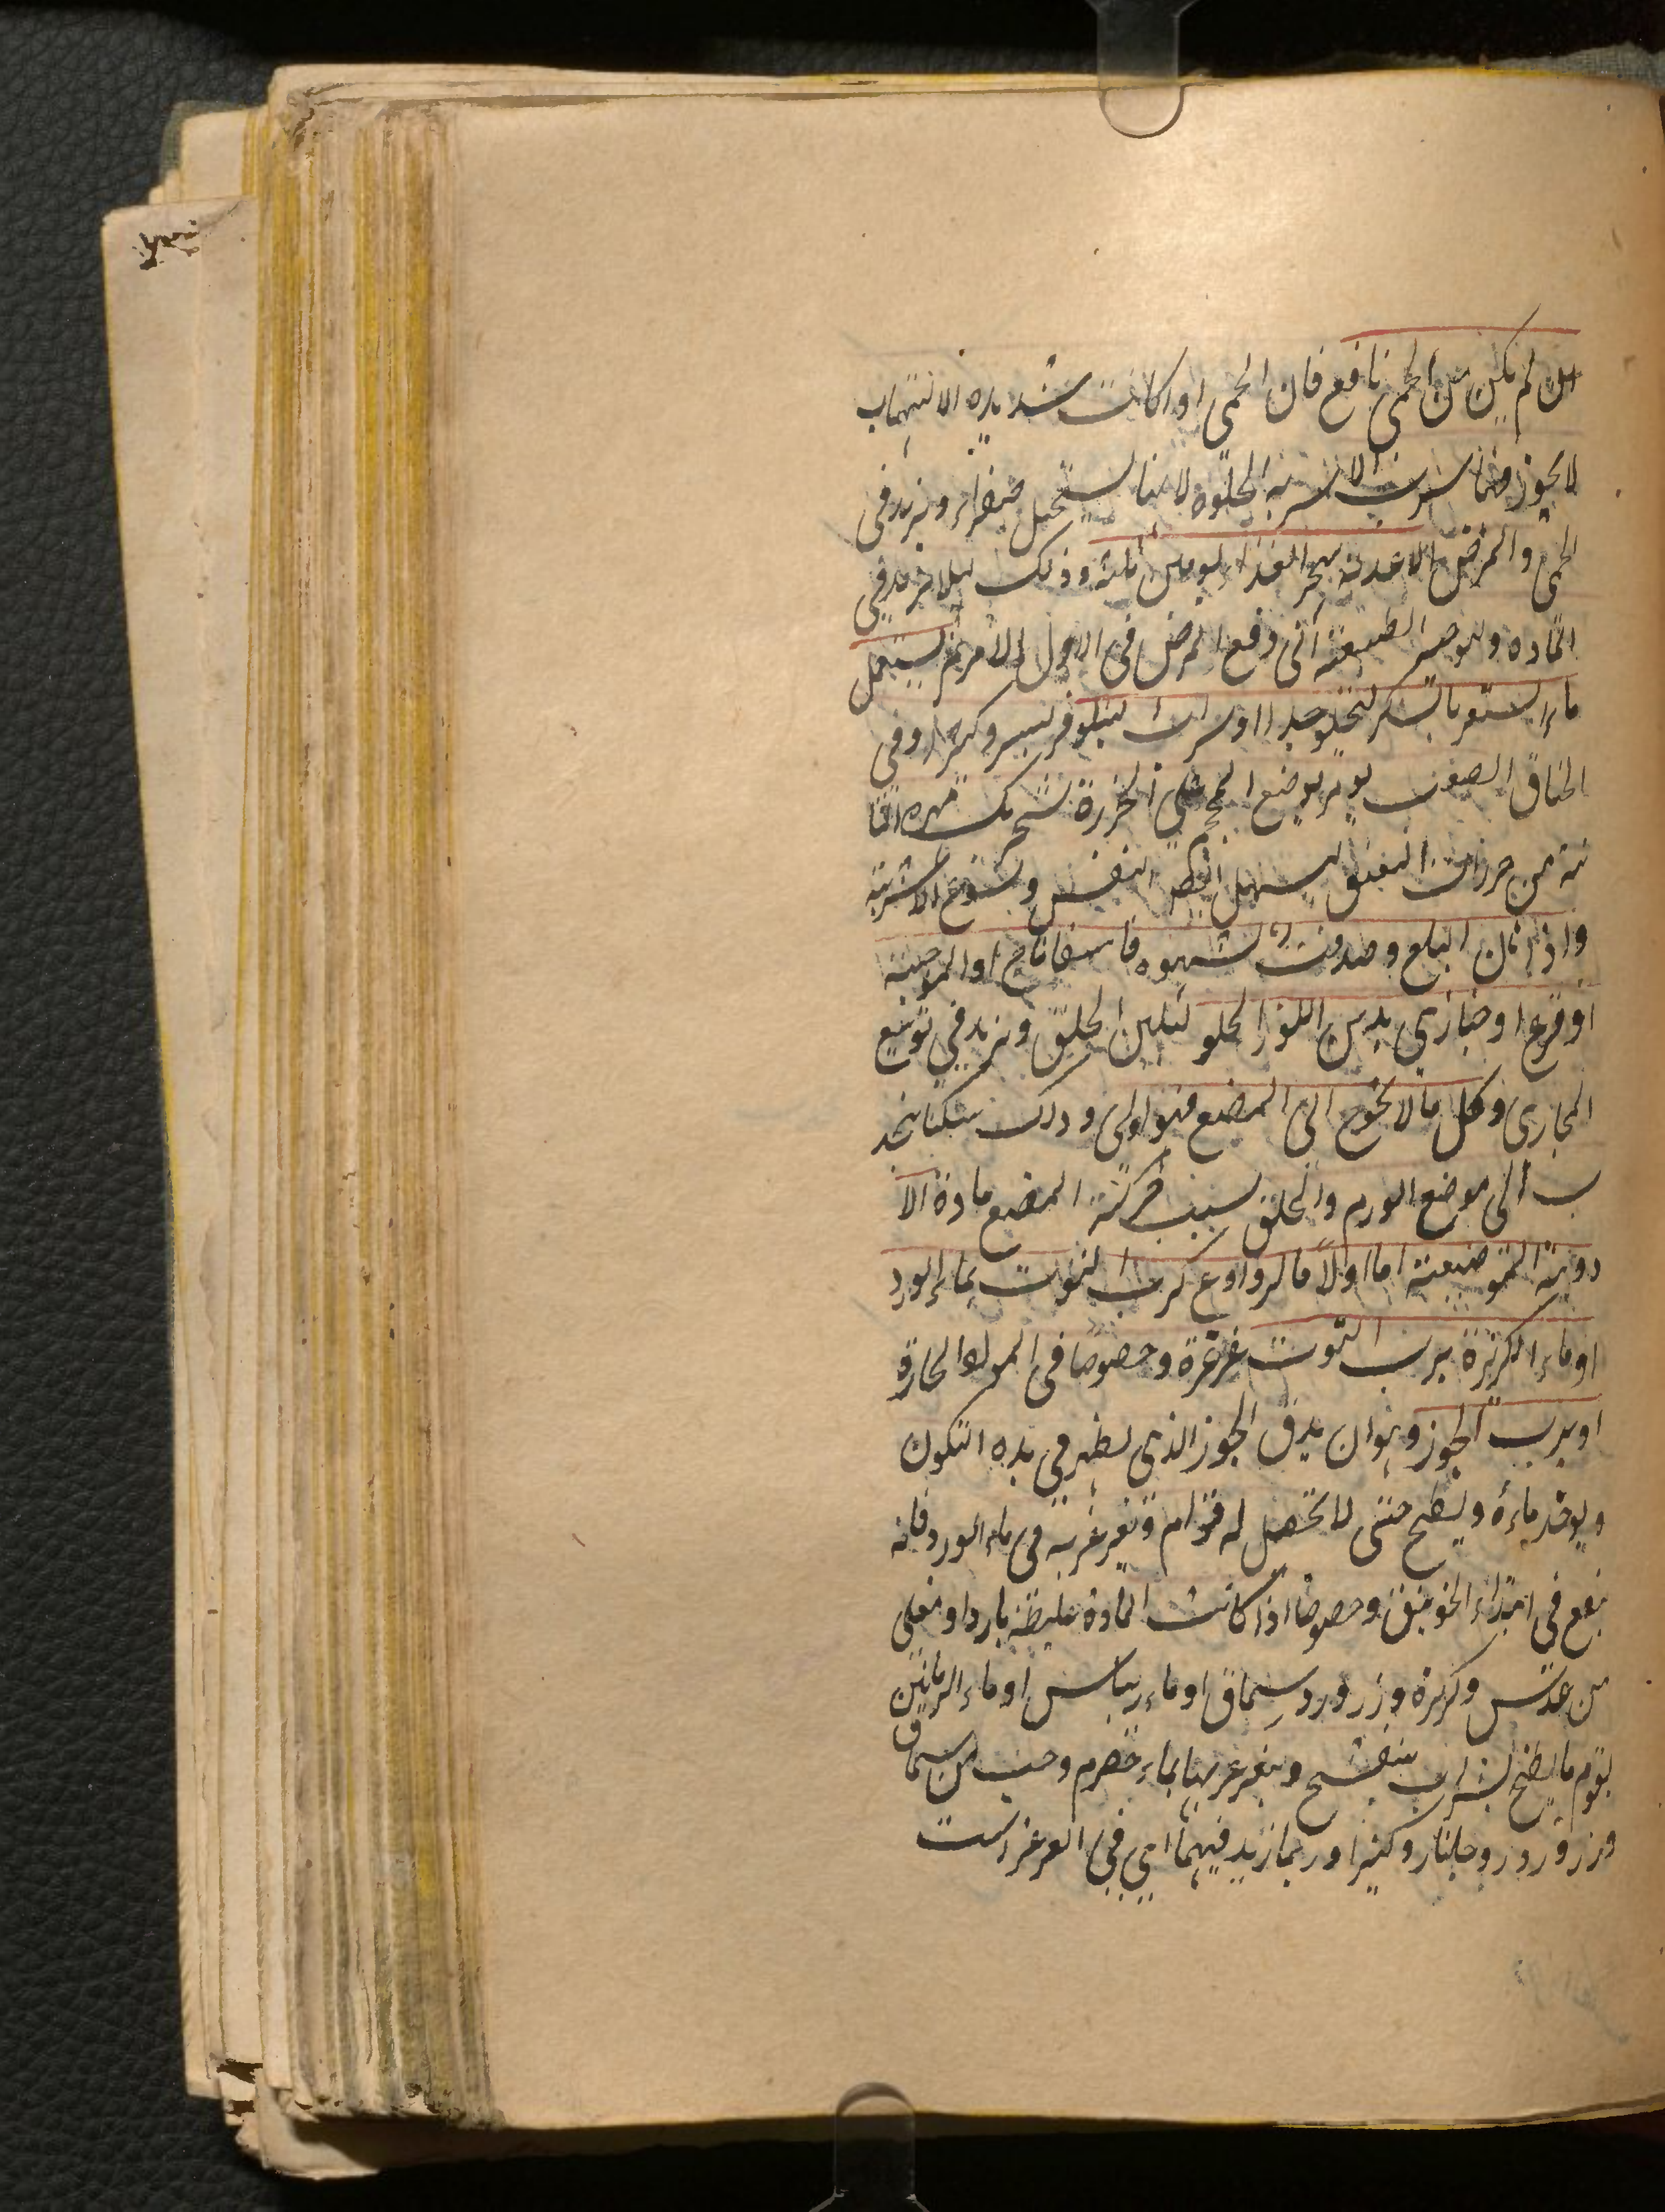 ان لم يكن من الحمى نافع فان الحمى او اكانت شديده الالتهاب
لا يجوز فيها شرب الاشربه الحلوه لانها لستحيل صفراء و يزيد فى
الحمى و المرض الاغذية يهجر الغذاء يومين ثلثة و ذلك لئلا يزيد فى
الماده و ليوصر الطبيعة الى دفع المرض فى الاول الامر ثم ليستعمل
ماء الشعير بالسكر ليحلو جدا او شراب لنيلوفر ليسير و كثيرا و فى
الخناق الصعب يومر بوضع المحجم على الخرزة لتحريك مهره الثا
نية من خرزات العنق ليسهل النفس و يسوغ الاشربة
و اذا كان البلع و صدقت الشهوه فاسفاناخ او الملوخية
او قرع او خبازى بدهن اللوز الحلو لتلين الحلق و يزيد فى توسيع
المجارى و كل ما لا يحوج الى المضغ فهو اولى و ذلك لتكنا يجذ
ب الى موضع الورم و الحلق بسبب حركة المضغ مادة الا
دوية الموضعية اما اولا فالروادع كرب التوت بماء الورد
او ماء الكزبرة برب التوت غرغرة و خصوصا فى المواد الحارة
او برب الجوز و هو ان يدق الجوز الذى يظهر فى بدء التكون
و يوخذ ماءه و يطبخ حتى لا تحصل له قوام و تغرغر به فى ماء الورد فانه
نفع فى ابتداء الخوانيق و خصوصا اذا كانت المادة غليظة باردا و مغلى
من عدس و كزبرة و زر ورد سماق او ماء ريباس او ماء الرمانين
يقوم ما يطبخ بشراب بنفسج و يتغرغر بها بماء حصرم و حب من سماق
و زر ورد و جلنار و كثيرا و ربما زيد فيهما اى فى الغرغرات